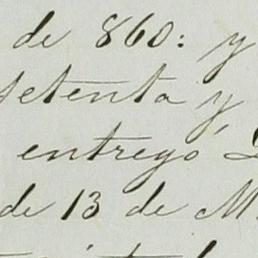 de 860: y
setenta y
entregó
de 13 de M